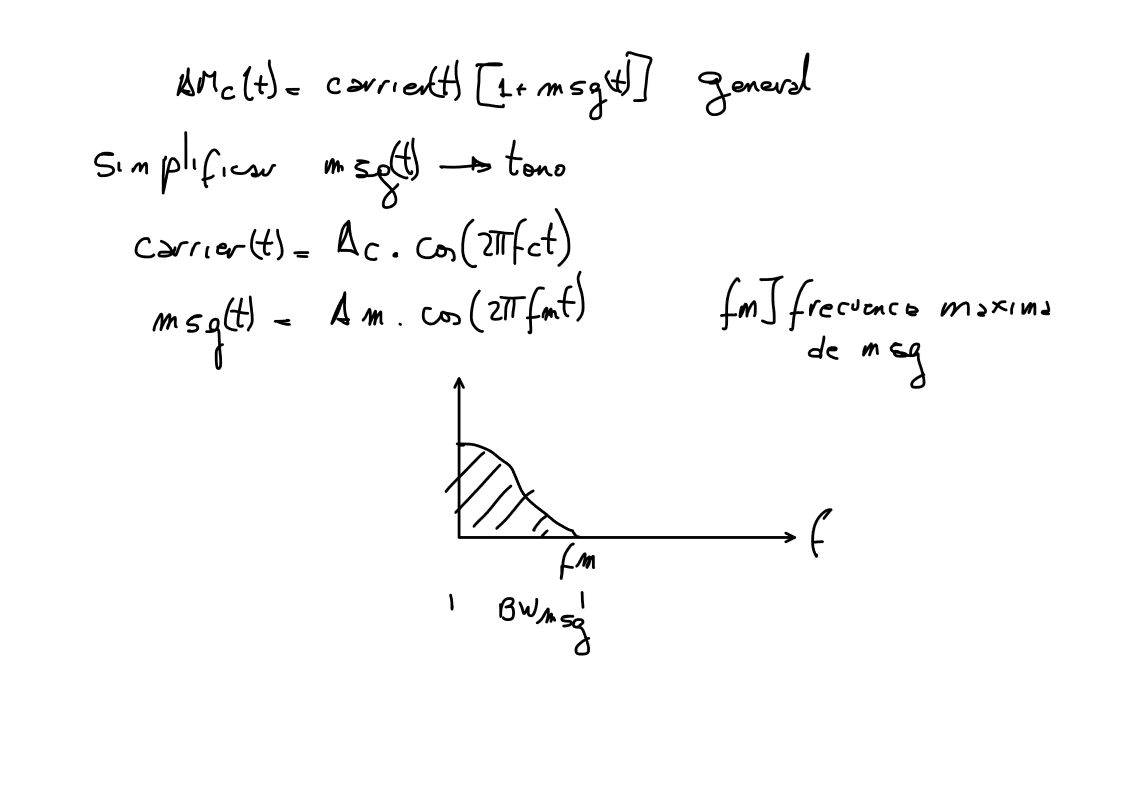 AMc(t) = carrier(t) [1 + msg(t)] general
Simplificar msg(t) → tono
carrier(t) = Ac . cos(2πfct)
msg(t) = Am . cos(2πfmt)
fm] frecuencia maxima
de msg
f
fm
BWmsg